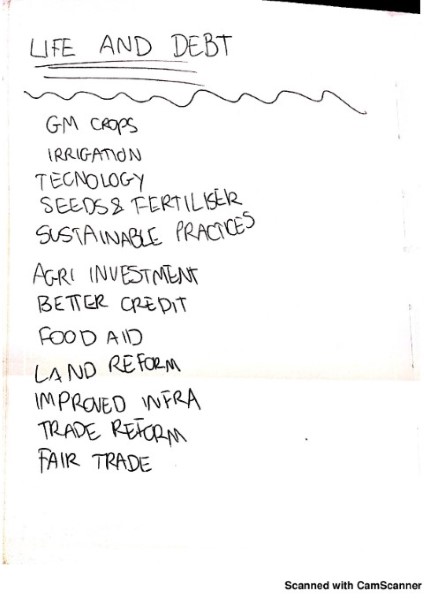 LIFE AND DEBT
GM CROPS
IRRIGATION
TECNOLOGY
SEEDS & FERTILISER
SUSTAINABLE PRACTICES
AGRI INVESTMENT
BETTER CREDIT
FOOD AID
LAND REFORM
IMPROVED INFRA
TRADE REFORM
FAIR TRADE
Scanned with CamScanner